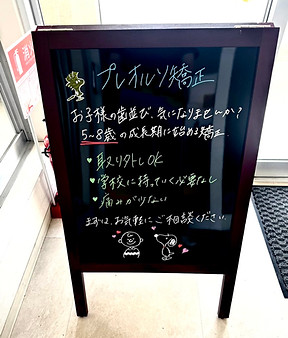 プレオルソ矯正
お子様の歯並び、気になりませんか?
5~8歳の成長期に始める矯正
♥取り外しOK
♥学校に持っていく必要なし
♥痛みが少ない
まずは、お気軽にご相談ください。